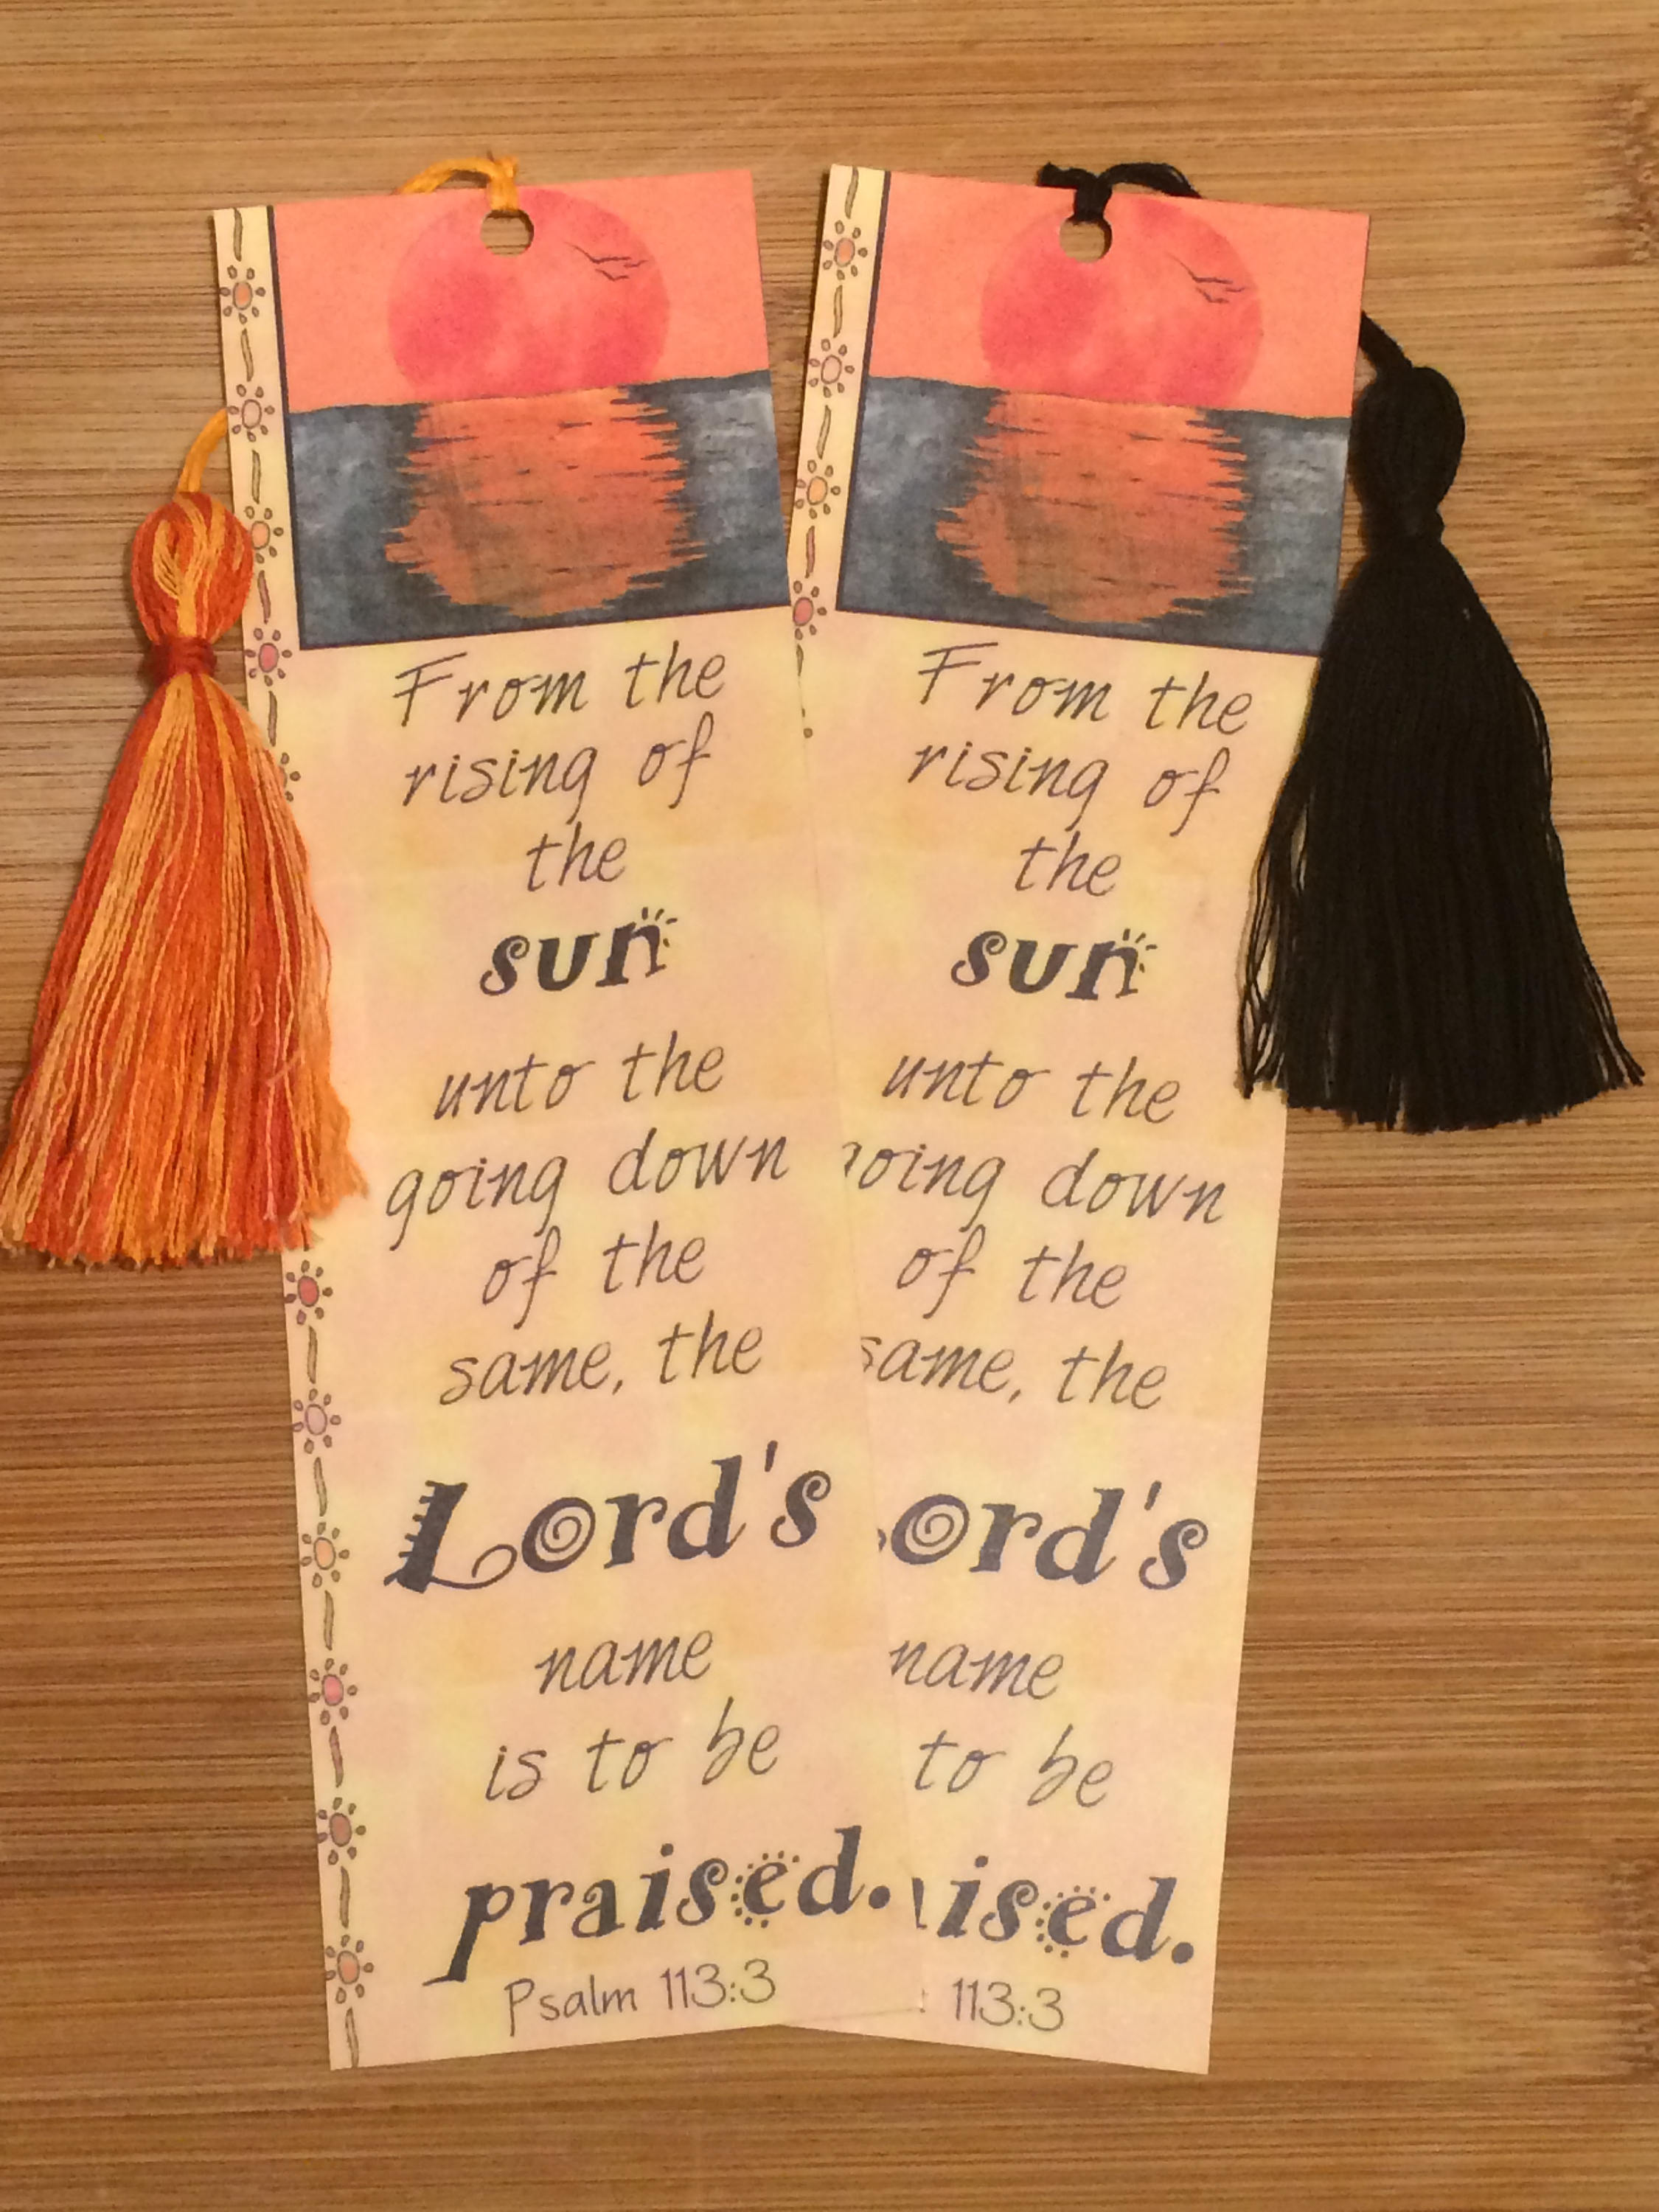 From the
rising of
the
sun
unto the
going down
of the
same, the
Lord's
name
is to be
praised.
Psalm 113:3
From the
rising of
the
sun
unto the
oing down
of the
same, the
ord's
name
to be
ised.
113:3